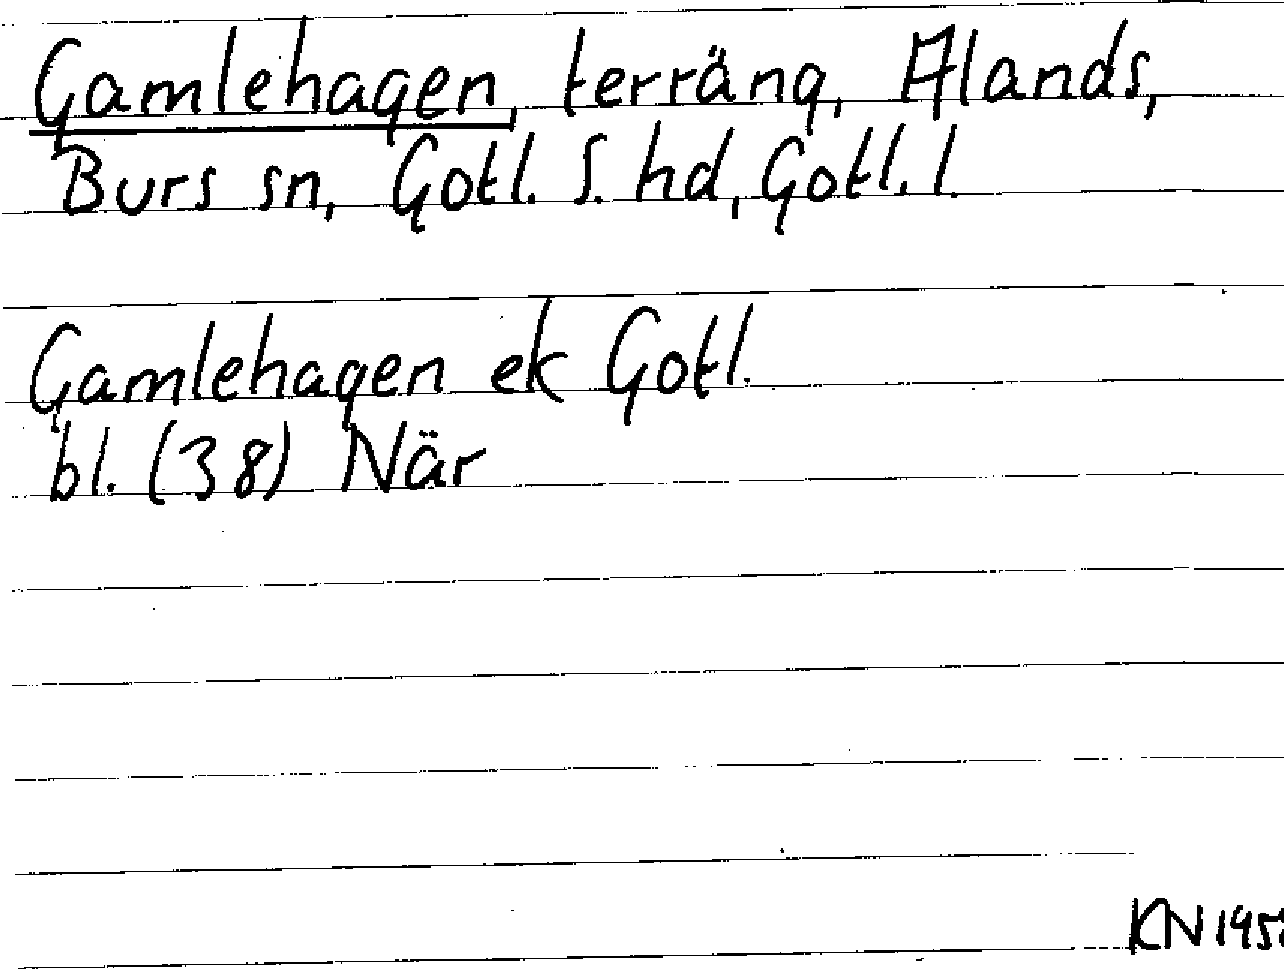 Gamlehagen, terräng, Alands,
Burs sn, Gotl. S. hd, Gotl. l.
Gamlehagen ek Gotl.
bl. (38) När
KN